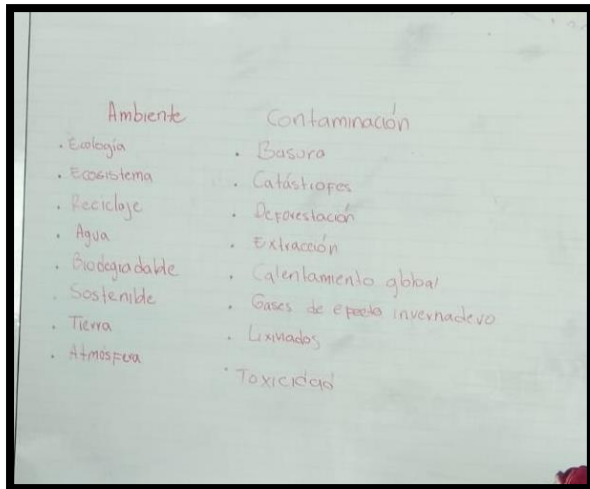 Ambiente
. Ecología
. Ecosistema
. Reciclaje
. Agua
. Biodegradable
. Sostenible
. Tierra
. Atmósfera
Contaminación
. Basura
. Catástrofes
. Deforestación
. Extracción
. Calentamiento global
. Gases de efecto invernadero
. Lixiviados
. Toxicidad